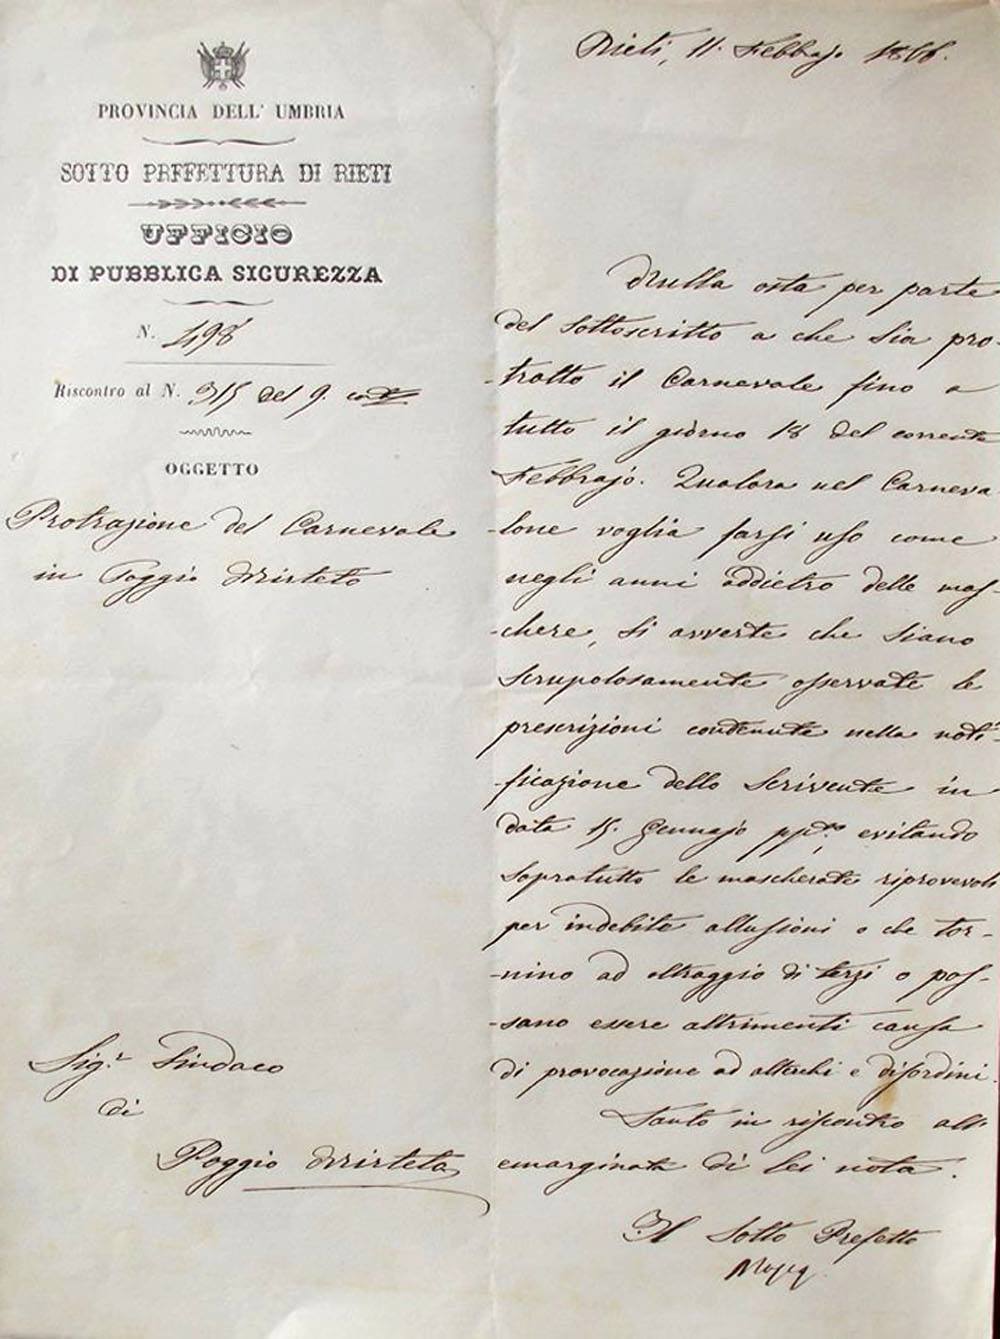 PROVINCIA DELL' UMBRIA
SOTTO PREFETTURA DI RIETI
UFFICIO
DI PUBBLICA SICUREZZA
N. 498
Riscontro al N. 315 del 9. cor.te
OGGETTO
Protrazione del Carnevale
in Poggio Mirteto
Sig.r Sindaco
di
Poggio Mirteto
Rieti, 11. Febbrajo 1866.
Nulla osta per parte
del sottoscritto a che sia pro-
-tratto il Carnevale fino a
tutto il giorno 18 del corrente
Febbrajo. Qualora nel Carneva
-lone voglia farsi uso come
negli anni addietro delle mas-
-chere, si avverte che siano
scrupolosamente osservate le
prescrizioni contenute nella noti-
-ficazione dello scrivente in
data 15. Gennajo pp.to, evitando
sopratutto le mascherate riprovevoli
per indebite allusioni o che tor-
-nino ad oltraggio di terzi o pos-
-sano essere altrimenti causa
di provocazione ad alterchi e disordini.
Tanto in riscontro all'
emarginata di lei nota.
Il Sotto Prefetto